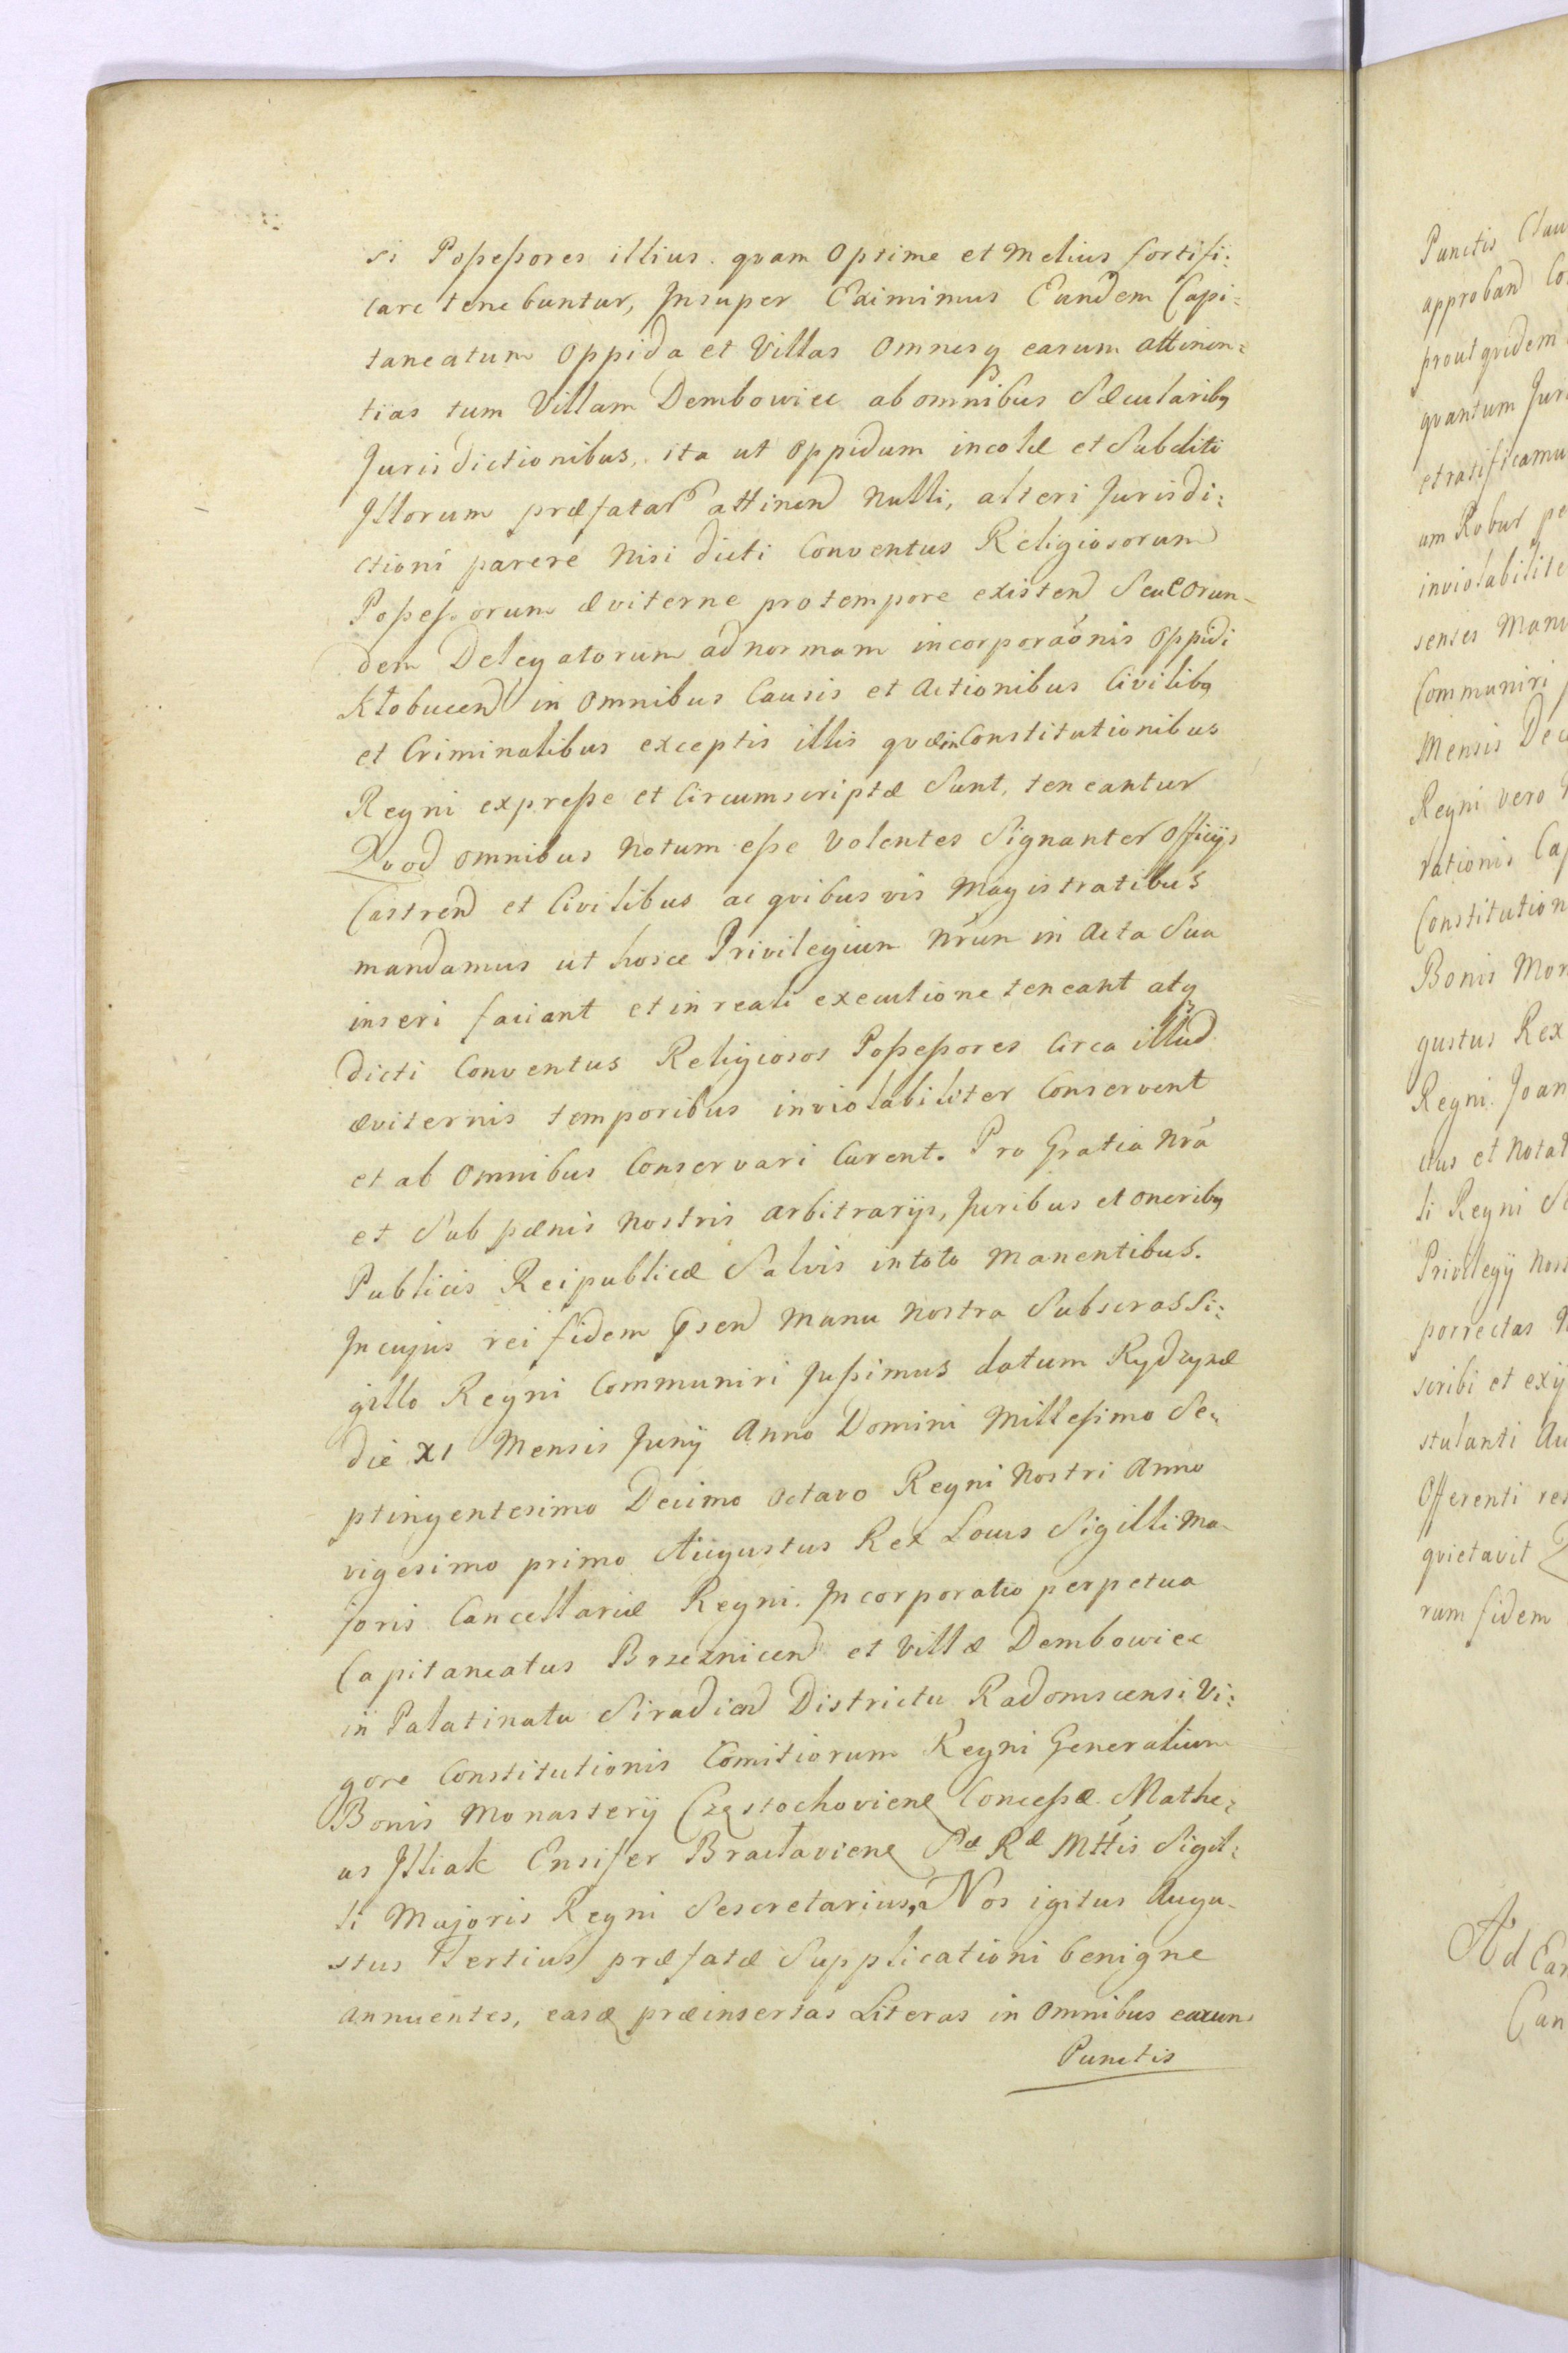 si Poßeßores illius quam Optime et Melius fortifi:
care tenebuntur, Insuper Eximimus Eundem Capi:
taneatum Oppida et Villas Omnesq earum attinen:
tias tum Villam Dembowiec ab omnibus Sæcularibq
Jurisdictionibus, ita ut Oppidum incolæ et Subditi
Illorum præfatar attinen Nulli, alteri Jurisdi:
ctioni parere Nisi dicti Conventus Religiosorum
Poßeßorum æviterne pro tempore existen Seu eorun-
dem Delegatorum ad normam incorporaõnis Oppidi
Kłobucen in Omnibus Causis et Actionibus Civilibq
et Criminalibus exceptis illis quæ in Constitutionibus
Regni expreße et Circumscriptæ Sunt, teneantur
Quod omnibus Notum eße Volentes Signanter Officijs
Castren et Civilibus ac quibusvis Magistratibus
mandamus ut hosce Privilegium Nrum in Acta Sua
inseri faciant et in reali executione teneant atq
dicti Conventus Religiosos Poßeßores Circa illud
æviternis temporibus inviolabiliter Conservent
et ab Omnibus Conservari Curent. Pro Gratia Nrã
et Sub pænis Nostris arbitrarijs, Juribus et oneribq
Publicis Reipublicæ Salvis in toto Manentibus.
In cujus rei fidem Psen Manu Nostra Subscras Si:
gillo Regni Communiri Jußimus datum Rydzynæ
die XI Mensis Junij Anno Domini Milleßimo Se:
ptingentesimo Decimo Octavo Regni Nostri Anno
vigesimo primo Augustus Rex Locus Sigilli Ma-
joris Cancellariæ Regni. Incorporatio perpetua
Capitaneatus Brzeznicen et Villæ Dembowiec
in Palatinatu Siradien Districtu Radomscensi Vi:
gore Constitutionis Comitiorum Regni Generalium
Bonis Monasterij Częstochovien Conceßæ. Mathe:
us Illiak Ensifer Bracłavien Sæ Ræ Mttis Sigil:
li Majoris Regni Sescretarius, Nos igitus Augu-
stus Tertius præfatæ Supplicationi benigne
annuentes, easq præinsertas Literas in Omnibus earun
Punctis
Punctis
approband
prout quidem
quantum Juri
et ratificamu
um Robur pe
inviolabilite
senses Manu
Communiri
Mensis Dec
Regni vero
rationis Ca
Constitution
Bonis Mon
gustus Rex
Regni. Joan
ctus et Notat
li Regni Se
Privilegij Nos
porrectas
scribi et exij
stulanti Au
Offerenti res
quietavit
rum fidem
Ad
Can